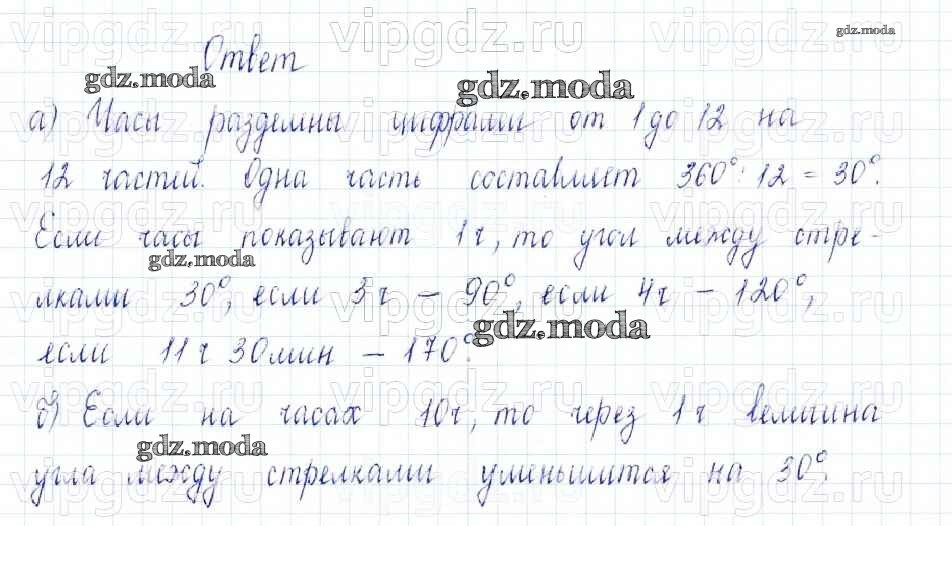 gdz.moda
Ответ
gdz.moda gdz.moda
а) Часы разделены цифрами от 1 до 12 на
12 частей. Одна часть составляет 360° : 12 = 30°.
Если часы показывают 1 ч, то угол между стре-
gdz.moda
лками 30°, если 3 ч – 90°, если 4 ч – 120°,
gdz.moda
если 11 ч 30 мин – 170°.
б) Если на часах 10 ч, то через 1 ч величина
gdz.moda
угла между стрелками уменьшится на 30°.